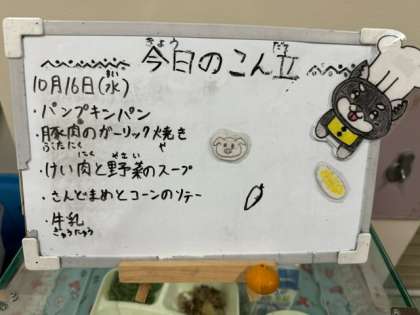 きょう だて
今日のこん立
10月16日(水)
すい
・パンプキンパン
・豚肉のガーリック焼き
ぶたにく や
にく やさい
・けい肉と野菜のスープ
・さんどまめとコーンのソテー
・牛乳
ぎゅうにゅう